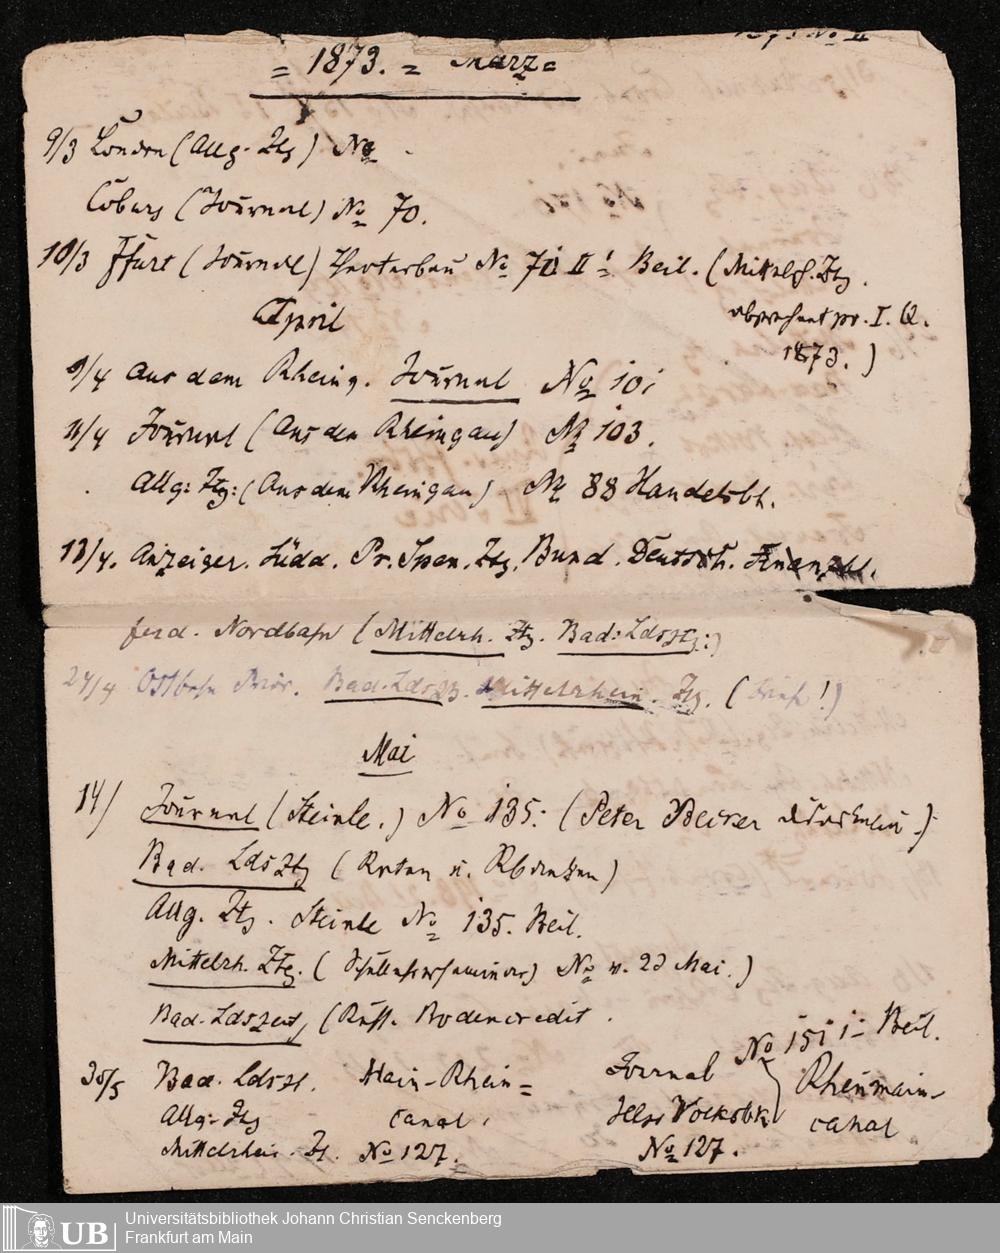 = 1873. = März =
9/3 London (Allg. Ztg) No
Coburg (Journal) No 70.
10/3 Ffurt (Journal) No 70 II! Beil. (Mittelrh. Ztg.
pr. I. Q.
1873.)
April
9/4 Aus dem Rheing. Journal No 101
11/4 Journal (Aus dem Rheingau) No 103.
Allg: Ztg: (Aus dem Rheingau) No 88 Handelsbl.
13/4. Anzeiger. Südd. Pr. Spen. Ztg. Bund. Deutsch.
ferd. Nordbahn (Mittelrh. Ztg. Bad: Ldsztg:)
24/4 Ostbahn Prior. Bad. Ldsztg. Mittelrhein. Ztg. (!)
Mai
14/ Journal (Steinle.) No 135: (Peter Becker)
Bad. Ldsztg ( u. )
Allg. Ztg. Steinle No 135. Beil.
Mittelrh. Ztg. (Schullehrerseminar) No v. 23 Mai.)
Bad. Ldszeit, (Russ. Bodencredit.
30/5 Bad. Ldszt. Main-Rhein= Journal No 151 1= Beil.
Allg: Ztg canal, Volksbl. Rheinmain-
Mittelrhein. Zt. No 127. No 127. canal
Universitätsbibliothek Johann Christian Senckenberg
Frankfurt am Main
UB